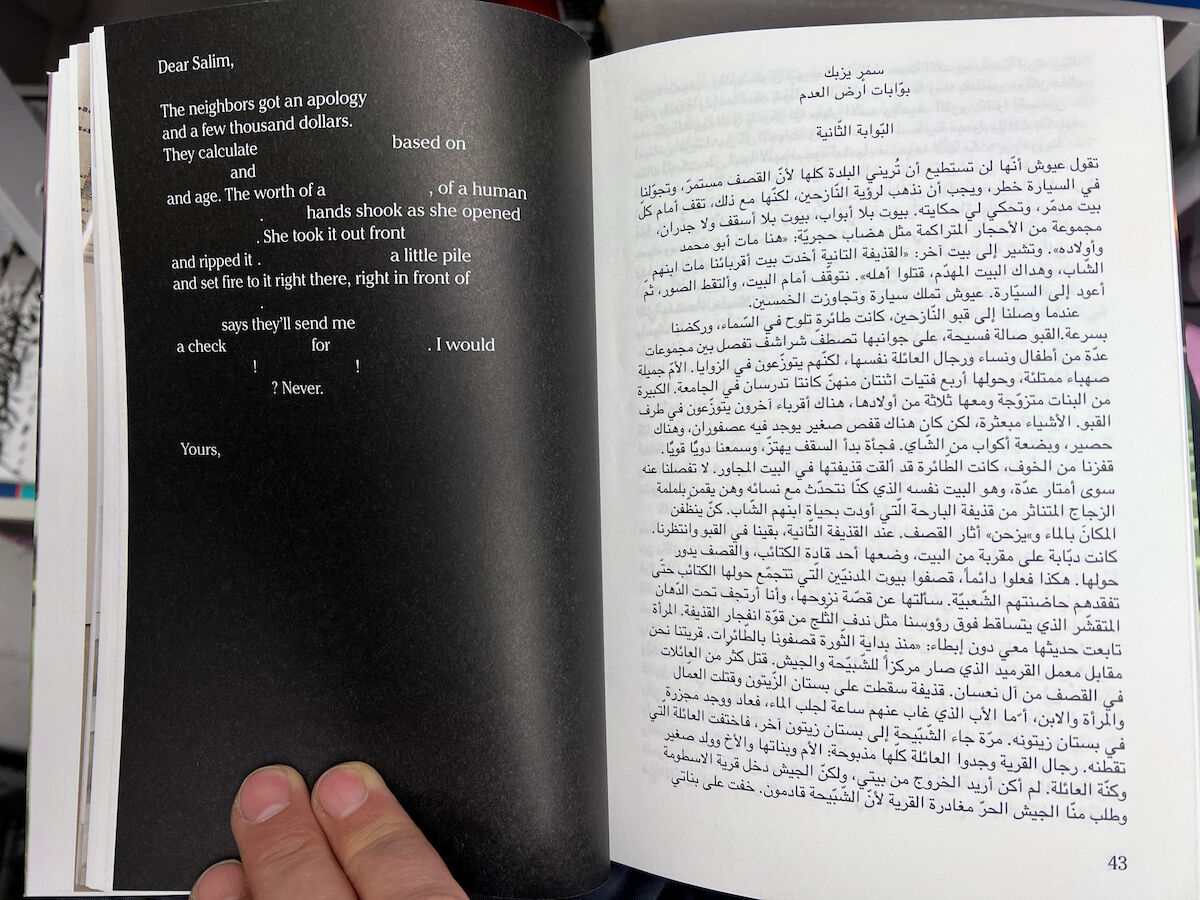 Dear Salim,
The neighbors got an apology
and a few thousand dollars.
They calculate based on
and
and age. The worth of a , of a human
. hands shook as she opened
. She took it out front
and ripped it . a little pile
and set fire to it right there, right in front of
.
says they’ll send me
a check for . I would
! !
? Never.
Yours,
سمر يزبك
بوّابات أرض العدم
البوّابة الثّانية
تقول عيوش أنّها لن تستطيع أن تُريني البلدة كلها لأنّ القصف مستمرّ، وتجوّلنا
في السيارة خطر، ويجب أن نذهب لرؤية النّازحين، لكنّها مع ذلك، تقف أمام كلّ
بيت مدمّر، وتحكي لي حكايته. بيوت بلا أبواب، بيوت بلا أسقف ولا جدران،
مجموعة من الأحجار المتراكمة مثل هضاب حجريّة: «هنا مات أبو محمد
وأولاده». وتشير إلى بيت آخر: «القذيفة التانية أخدت بيت أقربائنا مات ابنهم
الشاب، وهداك البيت المهدّم، قتلوا أهله». نتوقّف أمام البيت، وألتقط الصور، ثمّ
أعود إلى السيّارة. عيوش تملك سيارة وتجاوزت الخمسين.
عندما وصلنا إلى قبو النّازحين، كانت طائرة تلوح في السّماء، وركضنا
بسرعة.القبو صالة فسيحة، على جوانبها تصطفّ شراشف تفصل بين مجموعات
عدّة من أطفال ونساء ورجال العائلة نفسها، لكنّهم يتوزّعون في الزوايا. الأمّ جميلة
صهباء ممتلئة، وحولها أربع فتيات اثنتان منهنّ كانتا تدرسان في الجامعة. الكبيرة
من البنات متزوّجة ومعها ثلاثة من أولادها، هناك أقرباء آخرون يتوزّعون في طرف
القبو. الأشياء مبعثرة، لكن كان هناك قفص صغير يوجد فيه عصفوران، وهناك
حصير، وبضعة أكواب من الشّاي. فجأة بدأ السقف يهتزّ، وسمعنا دويًا قويًا.
قفزنا من الخوف، كانت الطّائرة قد ألقت قذيفتها في البيت المجاور. لا تفصلنا عنه
سوى أمتار عدّة، وهو البيت نفسه الذي كنّا نتحدّث مع نسائه وهن يقمن بلملمة
الزجاج المتناثر من قذيفة البارحة الّتي أودت بحياة ابنهم الشّاب. كنّ ينظّفن
المكان بالماء و»يزحن» أثار القصف. عند القذيفة الثّانية، بقينا في القبو وانتظرنا.
كانت دبّابة على مقربة من البيت، وضعها أحد قادة الكتائب، والقصف يدور
حولها. هكذا فعلوا دائماً، قصفوا بيوت المدنيّين الّتي تتجمّع حولها الكتائب حتّى
تفقدهم حاضنتهم الشّعبيّة. سألتها عن قصّة نزوحها، وأنا أرتجف تحت الدّهان
المتقشّر الذي يتساقط فوق رؤوسنا مثل ندف الثّلج من قوّة انفجار القذيفة. المرأة
تابعت حديثها معي دون إبطاء: «منذ بداية الثّورة قصفونا بالطّائرات. قريتنا نحن
مقابل معمل القرميد الذي صار مركزاً للشّبيّحة والجيش. قتل كثر من العائلات
في القصف من آل نعسان. قذيفة سقطت على بستان الزّيتون وقتلت العمّال
والمرأة والابن، أمّا الأب الذي غاب عنهم ساعة لجلب الماء، فعاد ووجد مجزرة
في بستان زيتونه. مرّة جاء الشّبيّحة إلى بستان زيتون آخر، فاختفت العائلة الّتي
تقطنه. رجال القرية وجدوا العائلة كلّها مذبوحة: الأم وبناتها والأخ وولد صغير
وكنّة العائلة. لم أكن أريد الخروج من بيتي، ولكنّ الجيش دخل قرية الاسطومة
وطلب منّا الجيش الحرّ مغادرة القرية لأنّ الشّبيّحة قادمون. خفت على بناتي
43